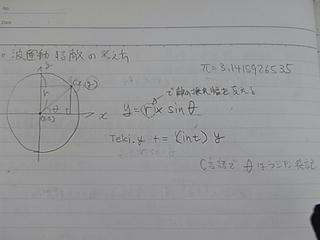 No.
Date
波運動する敵の考え方
y
(x,y)
r
θ
(0,0)
x
π=3.1415926535
で敵の揺れ幅を変える
y = r × sin θ
Teki.y += (int) y
C言語で θ はラジアン表記